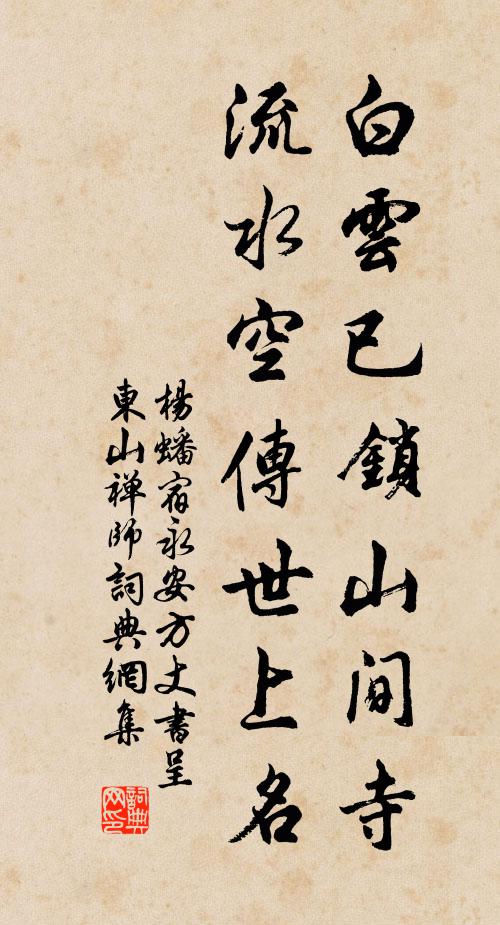 白雲已鎖山間寺
流水空傳世上名
楊蟠宿永安方丈書呈
東山禅師詞典網集
詞典
网印